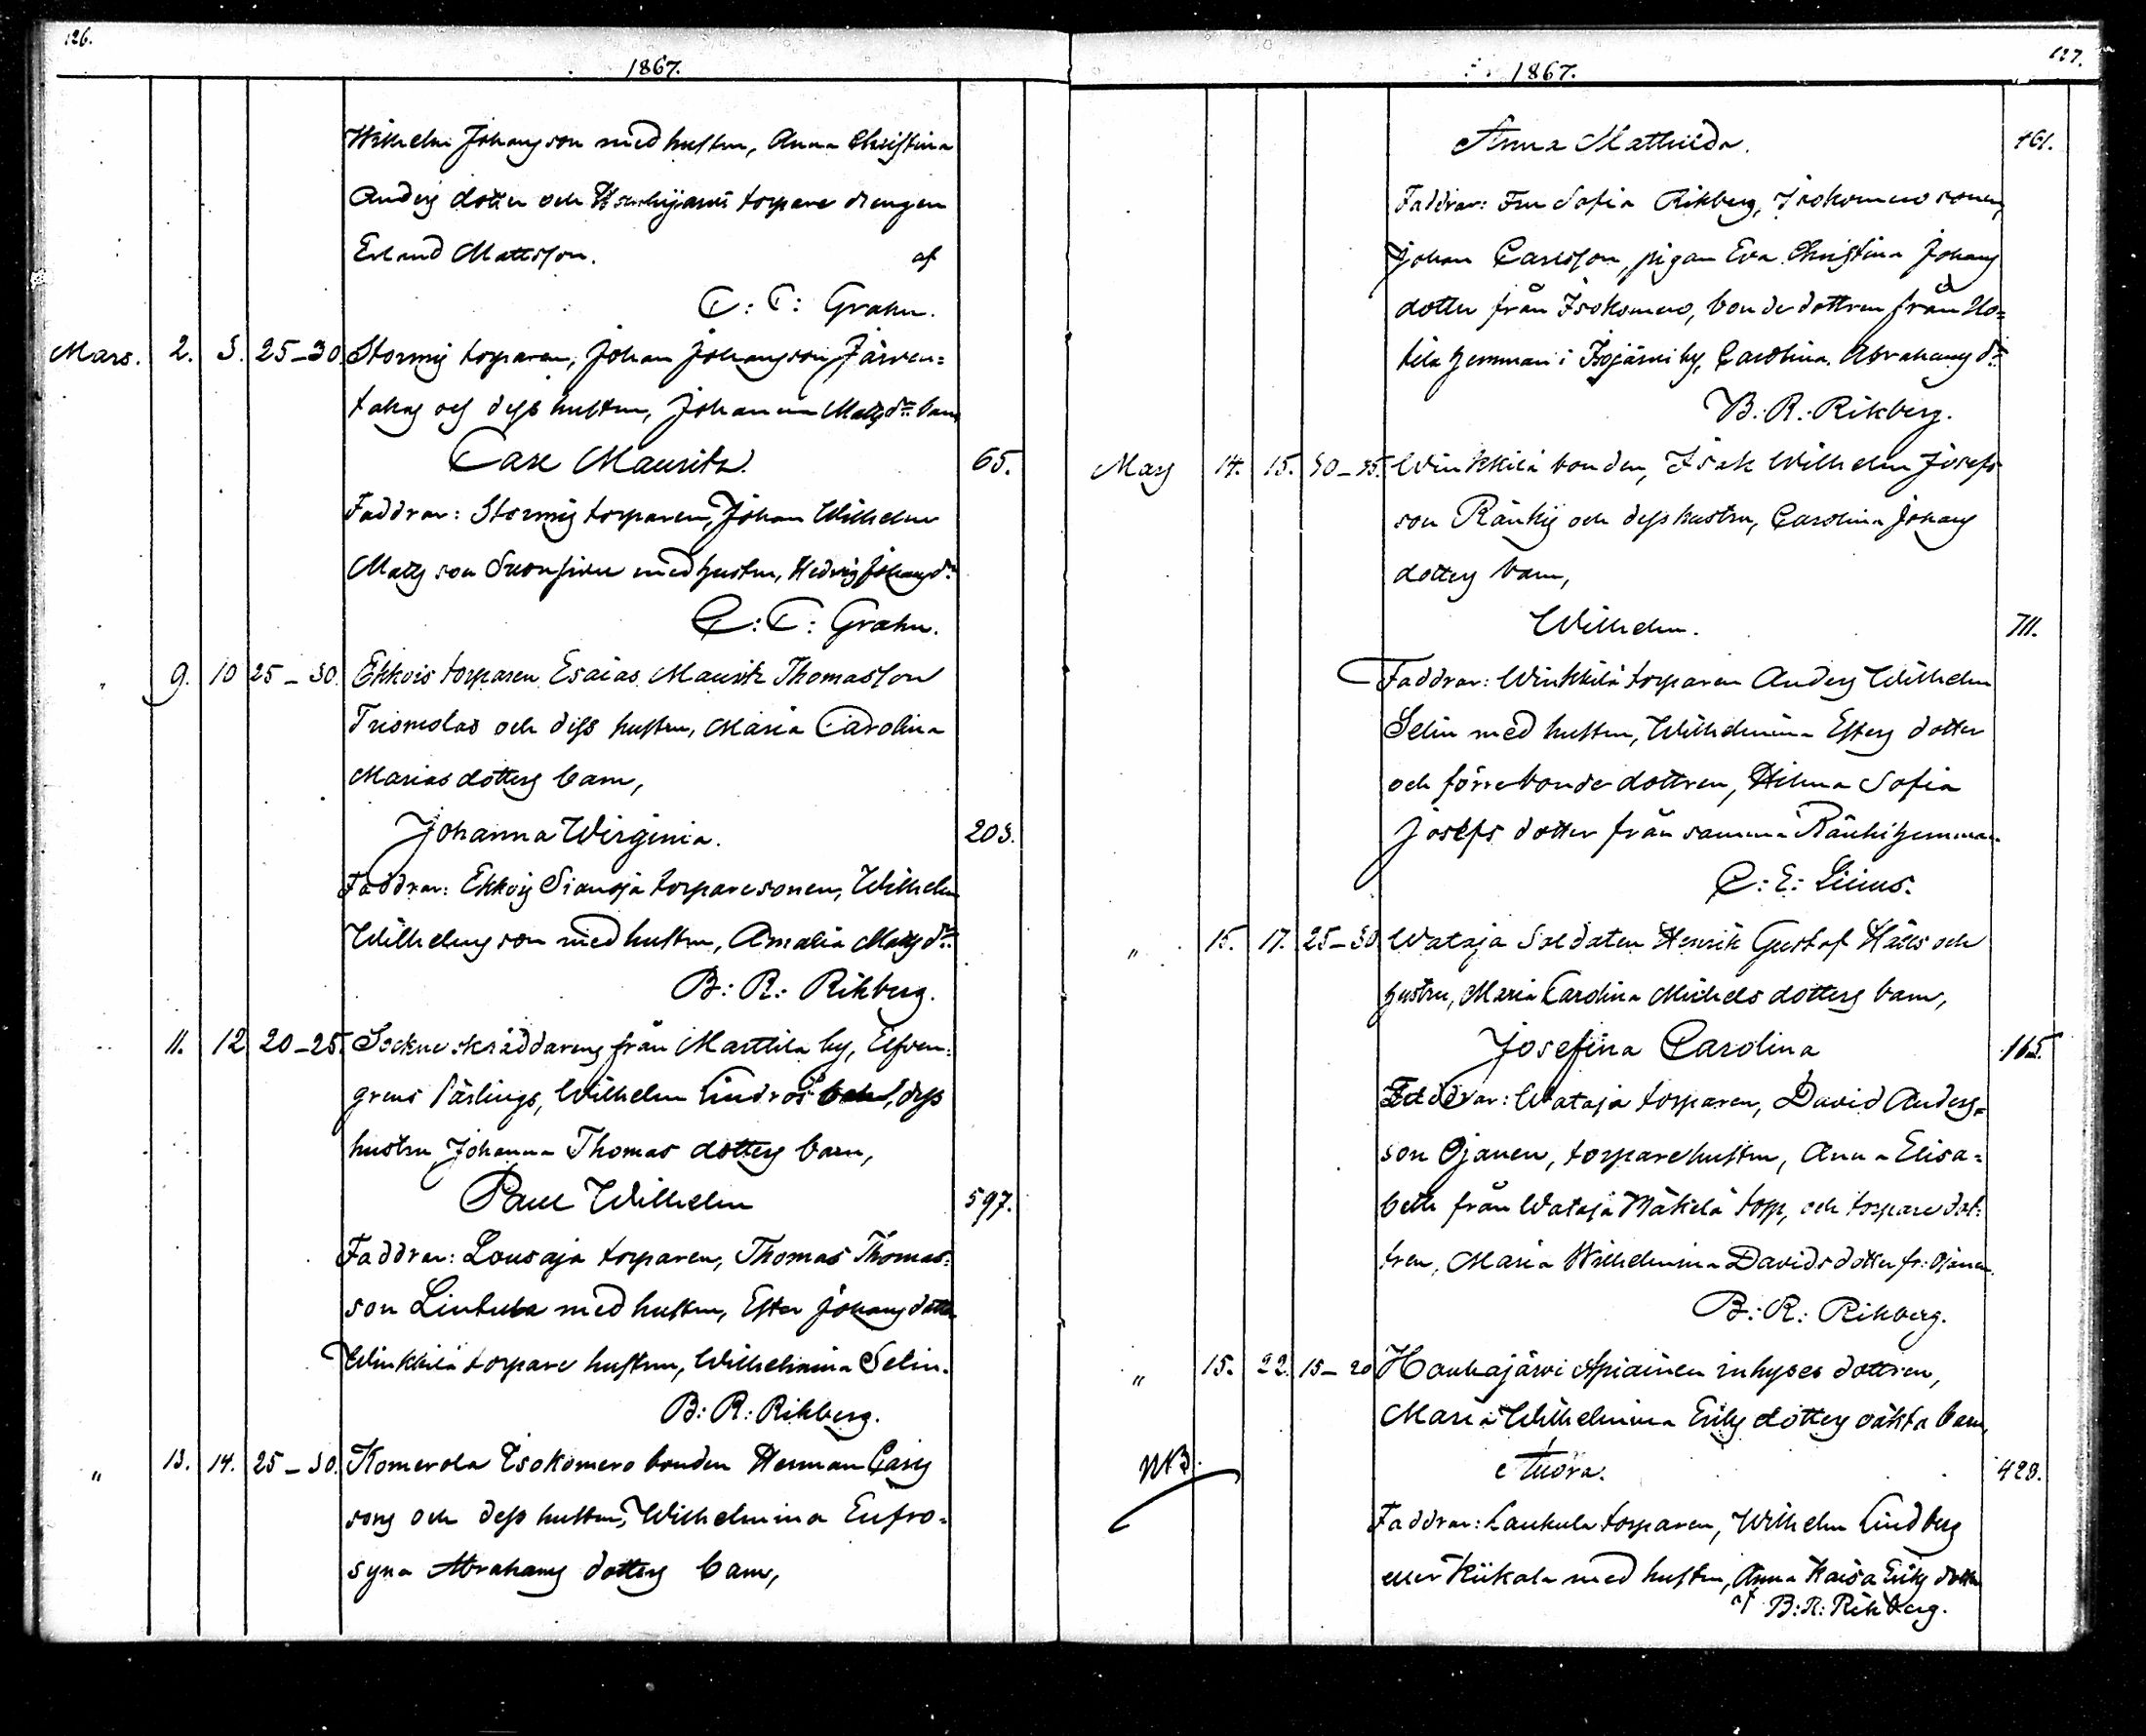 126.
1867.
Wilhelm Johansson med hustru, Anna Christina
Anders dotter och torpare drengen
Erland Mattsson. af
C: T: Grahn.
Mars. 2. 3. 25-30. Stormis torparen, Johan Johansson Järven-
takas och dess hustru, Johanna Matts dr barn
Carl Mauritz. 65.
Faddrar: Stormis torparen, Johan Wilhelm
Matts son med hustru, Hedvig Johans dr
C: T: Grahn.
" 9. 10 25-30. Ekkois torparen Esaias Mauritz Thomasson
och dess hustru, Maria Carolina
Mariasdotters barn,
Johanna Wirginia. 203.
Faddrar: Ekkois Sianoja torparesonen, Wilhelm
Wilhelmsson med hustru, Amalia Matts dr
B: R: Rikberg.
" 11. 12 20-25. Sockneskräddarens från Marttila by, Elfven-
grens lärlings, Wilhelm Lindros och dess
hustru Johanna Thomas dotters barn,
Paul Wilhelm 597.
Faddrar: Lousaja torparen, Thomas Thomas-
son Lintula med hustru, Ester Johans dotter
Winkkilä torpare hustrun, Wilhelmina Selin.
B: R: Rikberg.
" 13. 14. 25-30. Komerola Isokomero bonden Herman Carls
sons och dess hustru, Wilhelmina Eufro-
syna Abrahams dotters barn,
127.
1867.
Anna Mathilda. 461.
Faddrar: Fru Sofia Rikberg, Isokomero sonen,
Johan Carlsson, pigan Eva Christina Johans
dotter från Isokomero, bonde dottren från Uo-
tila hemman i Isojärvi by, Carolina Abrahams dr
B: R: Rikberg.
Mars 14. 15. 30-35. Winkkilä bonden, Isak Wilhelm Josefs
son Ränkis och dess hustru, Carolina Johans
dotters barn,
Wilhelm. 711.
Faddrar: Winkkilä torparen Anders Wilhelm
Selin med hustru, Wilhelmina Esters dotter
och förre bonde dottren, Hilma Sofia
Josefs dotter från samma Ränki hemman.
C: E: Lilius.
" 15. 17. 25-30. Wataja Soldaten Henrik Gustaf och
hustru, Maria Carolina Michels dotters barn,
Josefina Carolina 165.
Faddrar: Wataja torparen, David Anders-
son Ojanen, torparehustrun, Anna Elisa-
beth från Wataja Mäkelä torp, och torpare dot-
tren, Maria Wilhelmina Davids dotter fr: Ojanen.
B: R: Rikberg.
" 15. 22. 15-20 Haukajärvi Apiainen inhyses dottren,
Maria Wilhelmina Eriks dotters oäkta barn,
NB. Tuora. 428.
Faddrar: Laukula torparen, Wilhelm Lindberg
eller Kiikala med hustru, Anna Kaisa Eriks dotter
af B: R: Rikberg.